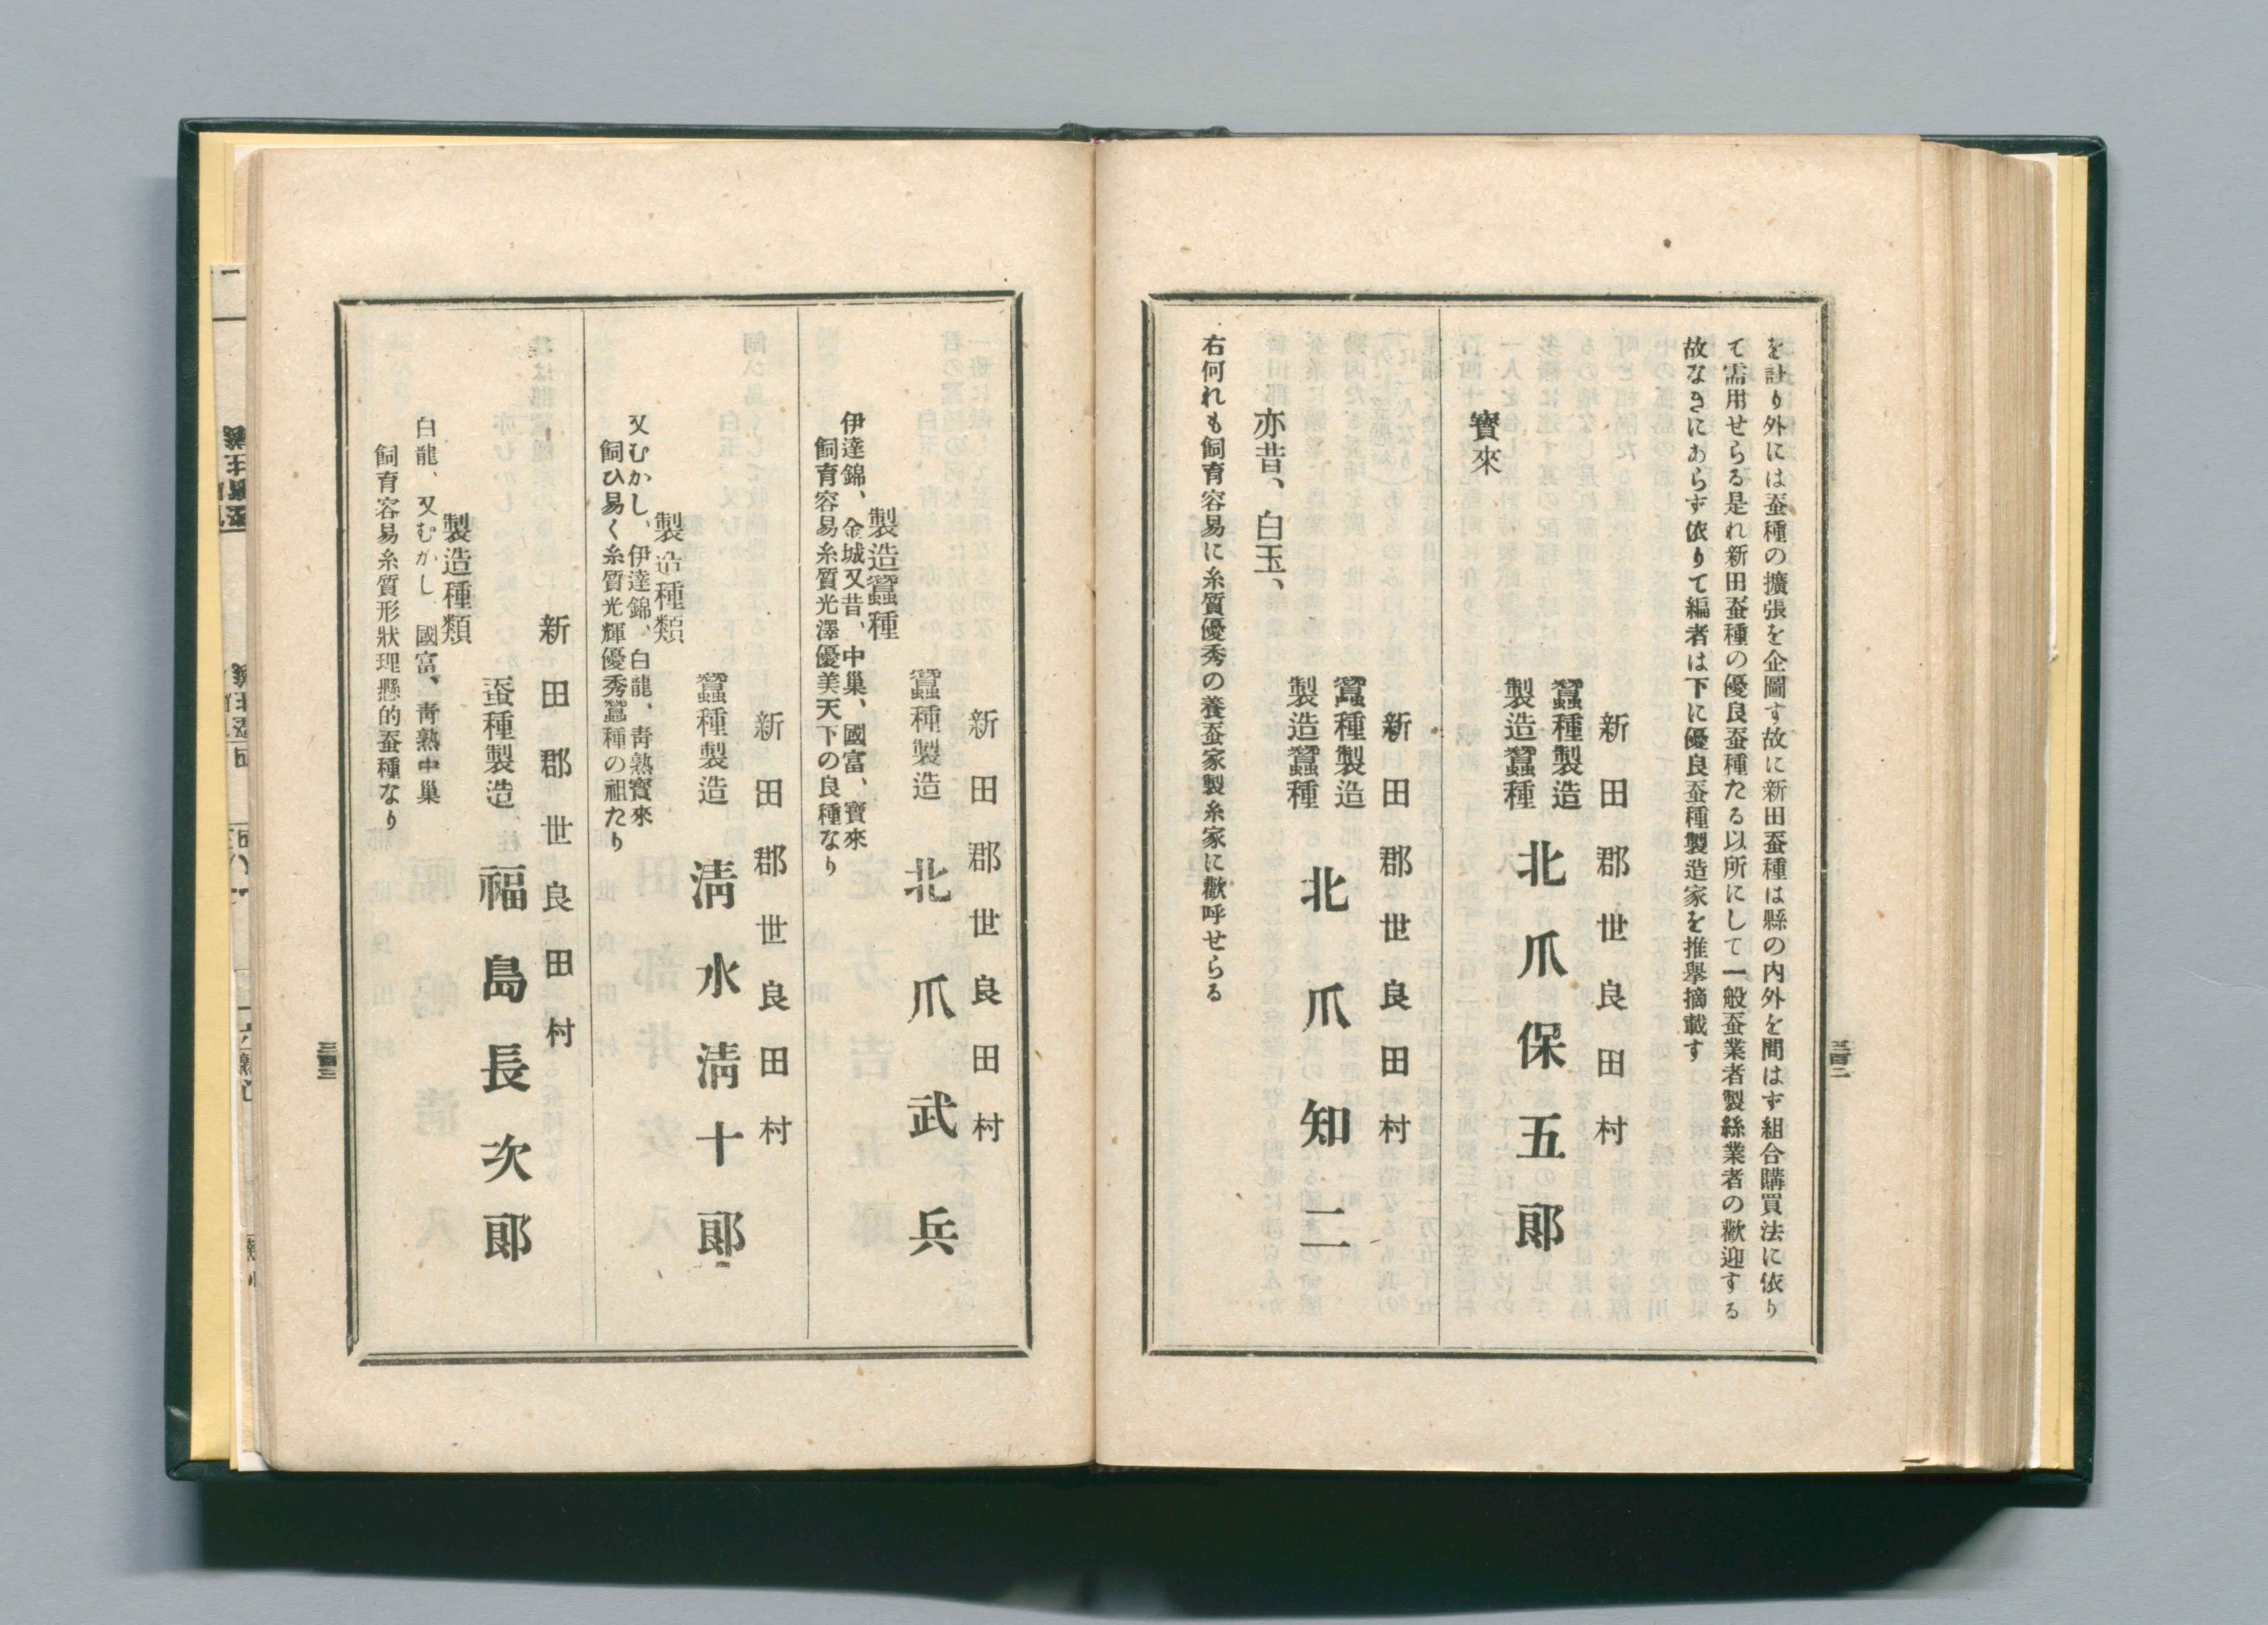 を計り外には蚕種の擴張を企圖す故に新田蚕種は縣の内外を問はす組合購買法に依り
て需用せらる是れ新田蚕種の優良蚕種たる以所にして一般蚕業者製絲業者の歡迎する
故なきにあらす依りて編者は下に優良蚕種製造家を推擧摘載す
新田郡世良田村
蠶種製造 北爪保五郎
製造蠶種
寶來
新田郡世良田村
蠶種製造 北爪知二
製造蠶種
亦昔、白玉、
右何れも飼育容易に糸質優秀の養蚕家製糸家に歡呼せらる
三百二
新田郡世良田村
蠶種製造 北爪武兵
製造蠶種
伊達錦、金城又昔、中巢、國富、寶來
飼育容易糸質光澤優美天下の良種なり
新田郡世良田村
蠶種製造 淸水淸十郎
製造種類
又むかし、伊達錦、白龍、靑熟寶來
飼ひ易く糸質光輝優秀蠶種の祖たり
新田郡世良田村
蚕種製造 福島長次郎
製造種類
白龍、又むかし、國富、靑熟中巢
飼育容易糸質形狀理懸的蚕種なり
三百三